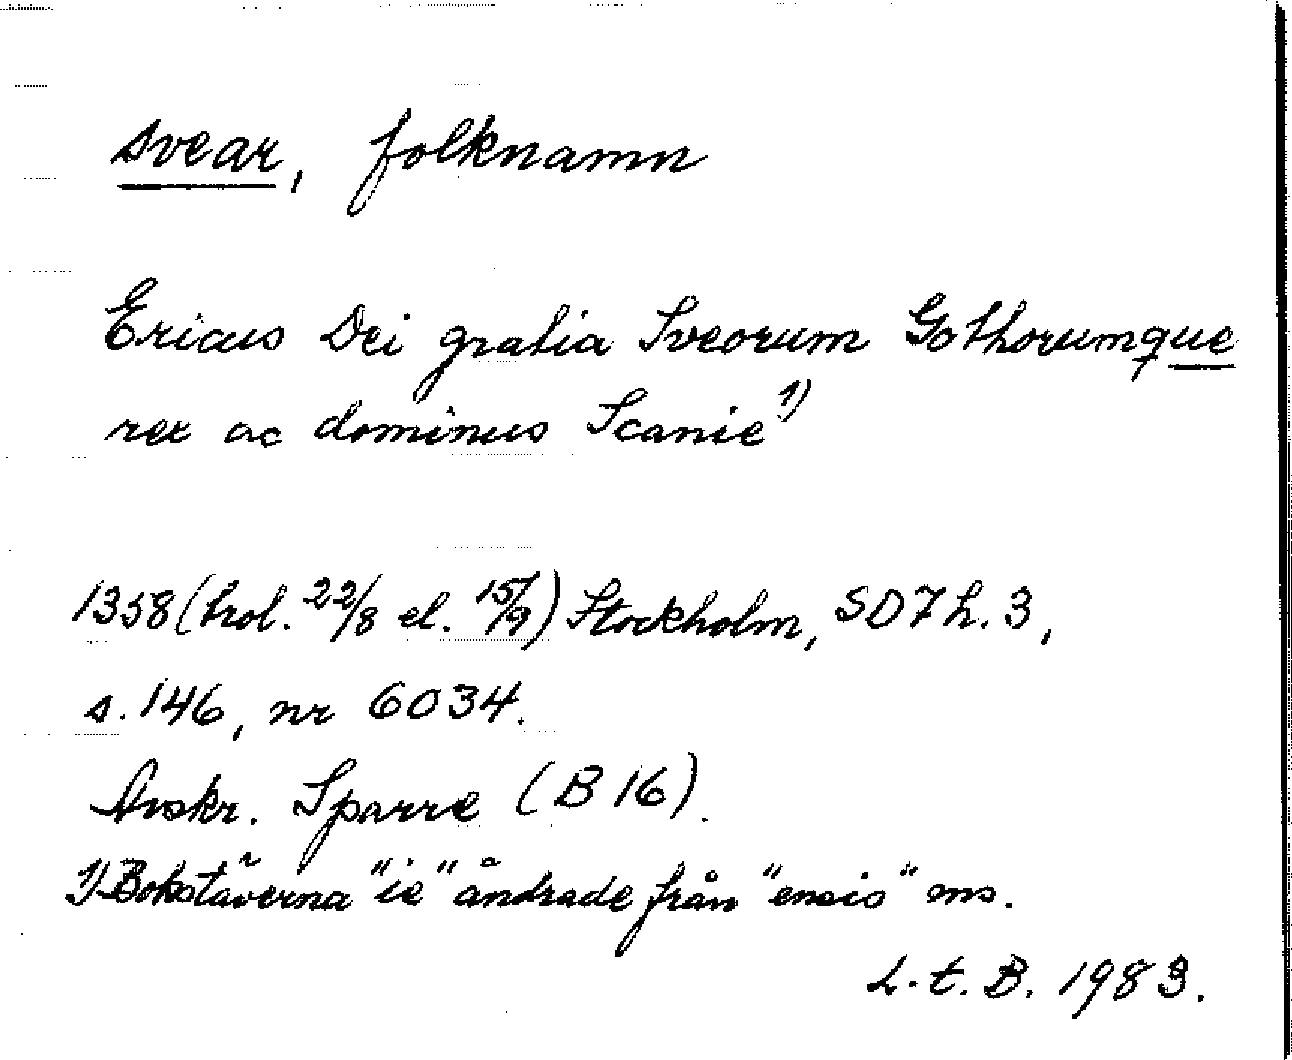 svear, folknamn
Ericus Dei gratia Sveorum Gothorumque
rex ac dominus Scanie 1)
1358 (trol. 22/8 el. 15/9) Stockholm, SD 7 h. 3,
s. 146, nr 6034.
Avskr. Sparre (B 16).
1) Bokstäverna "ie" ändrade från "ensis" ms.
L. t. B. 1983.